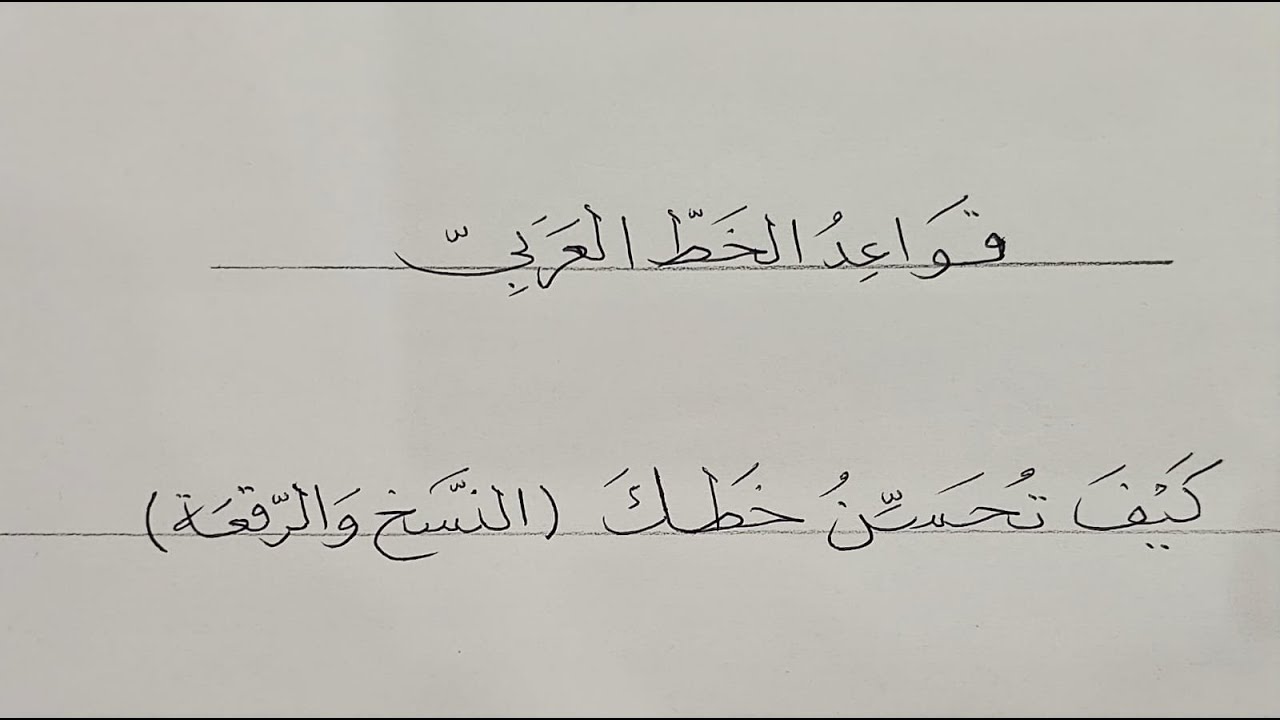 قَوَاعِدُ الخَطِّ العَرَبِيّ
كَيْفَ تُحَسِّنُ خَطَكَ (النَّسَخ وَالرِّقعَة)